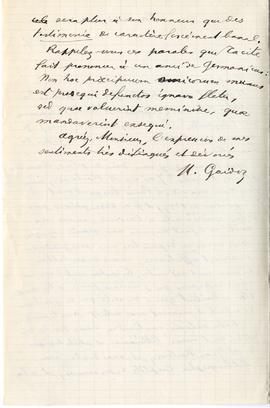 cela sera plus à son honneur que des
testimonia de caractère forcément banal.
Rappelez-vous ces paroles que Tacite
fait prononcer à un ami de Germanicus :
Non hoc præcipuum amicorum munus
est prosequi defunctos ignavo fletu,
sed quæ voluerint meminisse, quæ
mandaverint exsequi.
Agréez, Monsieur, l'expression de mes
sentiments très distingués et dévoués
H. Gaidoz